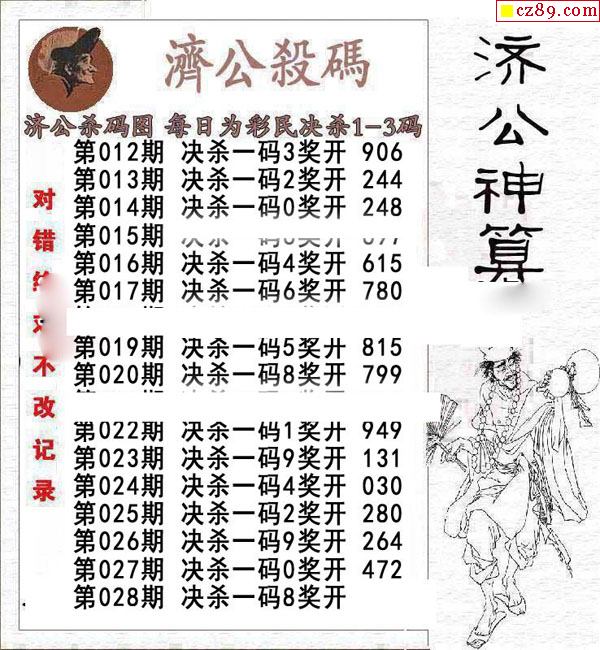 cz89.com
濟公殺碼
济公杀码图 每日为彩民决杀1-3码
第012期 决杀一码3奖开 906
第013期 决杀一码2奖开 244
第014期 决杀一码0奖开 248
第015期
第016期 决杀一码4奖开 615
第017期 决杀一码6奖开 780
第019期 决杀一码5奖开 815
第020期 决杀一码8奖开 799
第022期 决杀一码1奖开 949
第023期 决杀一码9奖开 131
第024期 决杀一码4奖开 030
第025期 决杀一码2奖开 280
第026期 决杀一码9奖开 264
第027期 决杀一码0奖开 472
第028期 决杀一码8奖开
对错 不改记录
济公神算